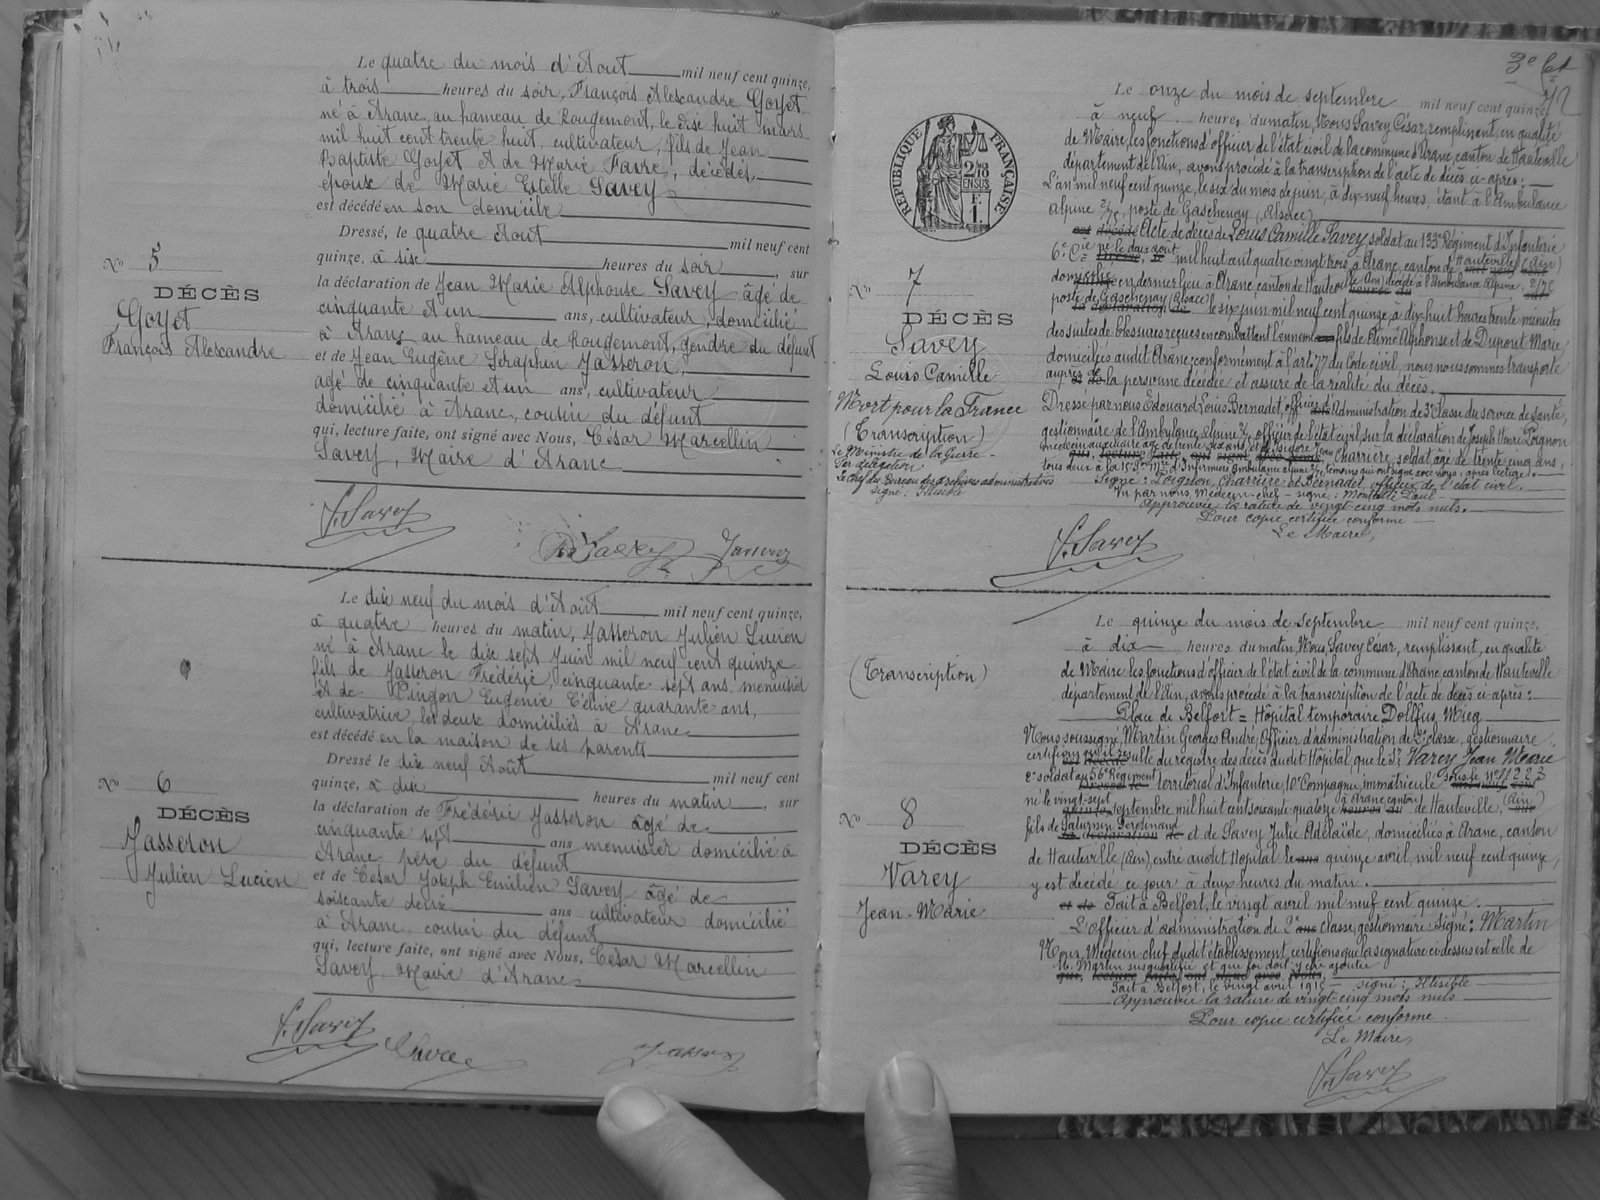 Le quatre du mois d'Aout mil neuf cent quinze,
à trois heures du soir, François Alexandre Goyet
né à Aranc, au hameau de Rougemont, le dix huit mars
mil huit cent trente huit, cultivateur, fils de Jean
Baptiste Goyet et de Marie Favre, décédés,
époux de Marie Estelle Savey
est décédé en son domicile
Dressé, le quatre Aout mil neuf cent
quinze, à six heures du soir, sur
la déclaration de Jean Marie Alphonse Savey âgé de
cinquante et un ans, cultivateur, domicilié
à Aranc au hameau de Rougemont, gendre du défunt
et de Jean Eugène Séraphin Jasseron,
agé de cinquante et un ans, cultivateur
domicilié à Aranc, cousin du défunt
qui, lecture faite, ont signé avec Nous, César Marcellin
Savey, Maire d'Aranc
No 5
DÉCÈS
Goyet
François Alexandre
Le dix neuf du mois d'Août mil neuf cent quinze,
à quatre heures du matin, Jasseron Julien Lucien
né à Aranc le dix sept Juin mil neuf cent quinze
fils de Jasseron Frédéric, cinquante sept ans, menuisier
et de Pingon Eugénie Céline quarante ans,
cultivatrice, les deux domiciliés à Aranc
est décédé en la maison de ses parents
Dressé le dix neuf Août mil neuf cent
quinze, à dix heures du matin, sur
la déclaration de Frédéric Jasseron âgé de
cinquante sept ans menuisier domicilié à
Aranc père du défunt
et de César Joseph Emilien Savey âgé de
soixante deux ans cultivateur domicilié
à Aranc cousin du défunt
qui, lecture faite, ont signé avec Nous, César Marcellin
Savey Maire d'Aranc
No 6
DÉCÈS
Jasseron
Julien Lucien
RÉPUBLIQUE FRANÇAISE
2/10
EN SUS
Le onze du mois de septembre mil neuf cent quinze
à neuf heures du matin, Nous Savey César, remplissant, en qualité
de Maire, les fonctions d'officier de l'état civil de la commune d'Aranc, canton de Hauteville
département de l'Ain, avons procédé à la transcription de l'acte de décès ci-après:
L'an mil neuf cent quinze, le six du mois de juin, à dix-neuf heures, étant à l'Ambulance
Alpine 2/75, poste de Gaschenay (Alsace)
Acte de décès de Louis Camille Savey soldat au 133e Régiment d'Infanterie
6e Cie né le dix août mil huit cent quatre vingt trois à Aranc, canton de Hauteville (Ain)
domicilié en dernier lieu à Aranc, canton de Hauteville (Ain) décédé à l'Ambulance Alpine 2/75
poste de Gaschenay (Alsace) le six juin mil neuf cent quinze à dix-huit heures trente minutes
des suites de blessures reçues en combattant l'ennemi fils de Aimé Alphonse et de Duporet Marie
domiciliés audit Aranc; conformément à l'art. 77 du Code civil, nous nous sommes transporté
auprès de la personne décédée et assuré de la réalité du décès.
Dressé par nous Edouard Louis Bernadet, officier d'Administration de 3e Classe du service de santé,
gestionnaire de l'Ambulance Alpine 2/75 officier de l'état civil, sur la déclaration de Joseph Henri Poignon
médecin auxiliaire âgé de trente six ans et de Isidore Jean Charrière, soldat, âgé de trente cinq ans,
Signé: Poignon, Charrière et Bernadet officier de l'état civil.
Vu par nous, Médecin-chef - signé:
Approuvée la rature de vingt-cinq mots nuls.
Pour copie certifiée conforme
Le Maire,
No 7
DÉCÈS
Savey
Louis Camille
Mort pour la France
(Transcription)
Le Ministre de la Guerre -
Par délégation
Le Chef du Bureau des Archives administratives
Signé: Illisible
Le quinze du mois de septembre mil neuf cent quinze,
à dix heures du matin, Nous, Savey César, remplissant, en qualité
de Maire les fonctions d'officier de l'état civil de la commune d'Aranc canton de Hauteville
département de l'Ain, avons procédé à la transcription de l'acte de décès ci-après:
Place de Belfort = Hôpital temporaire Dollfus Mieg
Nous soussigné, Martin Georges André, Officier d'administration de 2e classe, gestionnaire
certifions qu'il résulte du registre des décès dudit Hôpital, que le Sr Varey Jean Marie
2e soldat au 56e Régiment Territorial d'Infanterie, 10e Compagnie, immatriculé sous le No 11223
né le vingt-sept septembre mil huit cent soixante quatorze à Aranc, canton de Hauteville, (Ain)
fils de Saturnin Ferdinand et de Savey Julie Adélaïde, domiciliés à Aranc, canton
de Hauteville (Ain), entré audit Hôpital le quinze avril, mil neuf cent quinze,
y est décédé ce jour à deux heures du matin.
Fait à Belfort, le vingt avril mil neuf cent quinze.
L'Officier d'administration de 2e classe, gestionnaire. Signé: Martin
Nous, Médecin chef dudit établissement, certifions que la signature ci-dessus est celle de
M. Martin susqualifié et que foi doit y être ajoutée
Fait à Belfort, le vingt avril 1915 - signé: Illisible
Approuvée la rature de vingt-cinq mots nuls
Pour copie certifiée conforme.
Le Maire,
(Transcription)
No 8
DÉCÈS
Varey
Jean-Marie